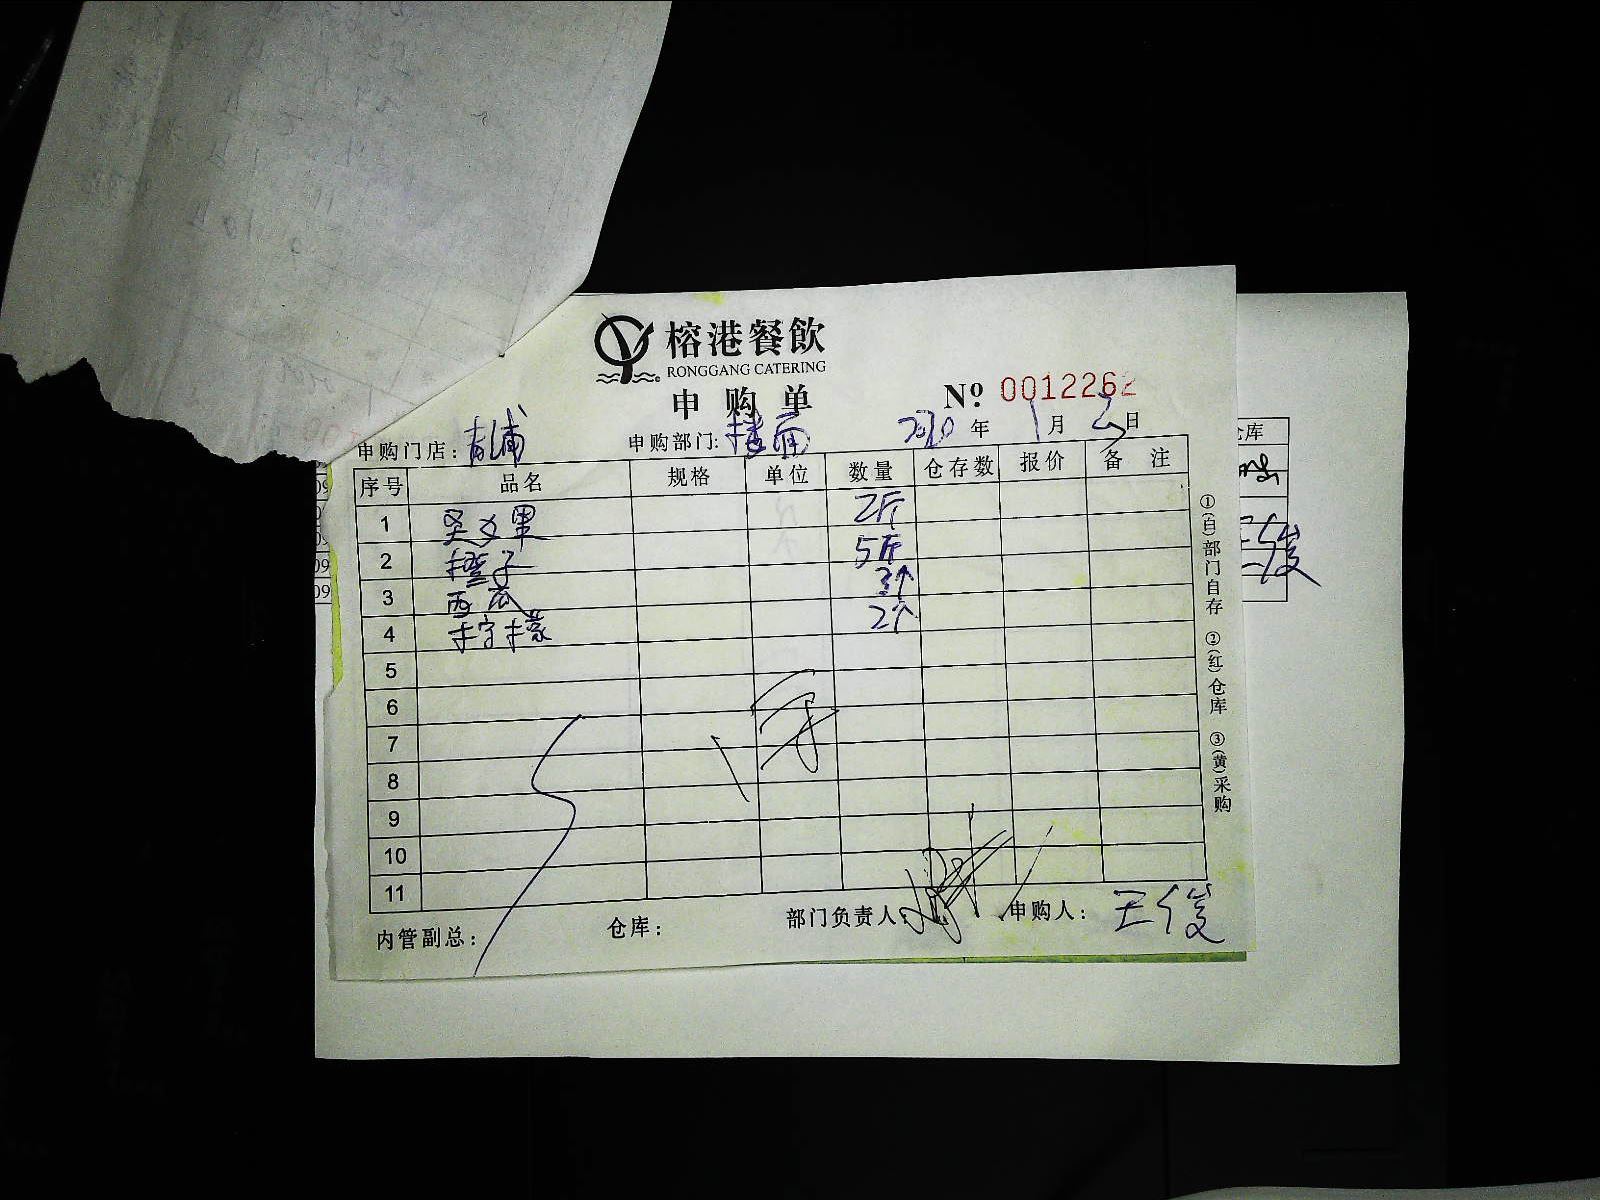 榕港餐飲
RONGGANG CATERING
申购单
№ 0012262
申购门店：青浦 申购部门：楼面 2020年1月2日
序号 品名 规格 单位 数量 仓存数 报价 备注
1 圣女果 2斤
2 橙子 5斤
3 西瓜 3个
4 柠檬 2个
5
6
7
8
9
10
11
内管副总： 仓库： 部门负责人： 申购人：王俊
①(白)部门自存 ②(红)仓库 ③(黄)采购
仓库